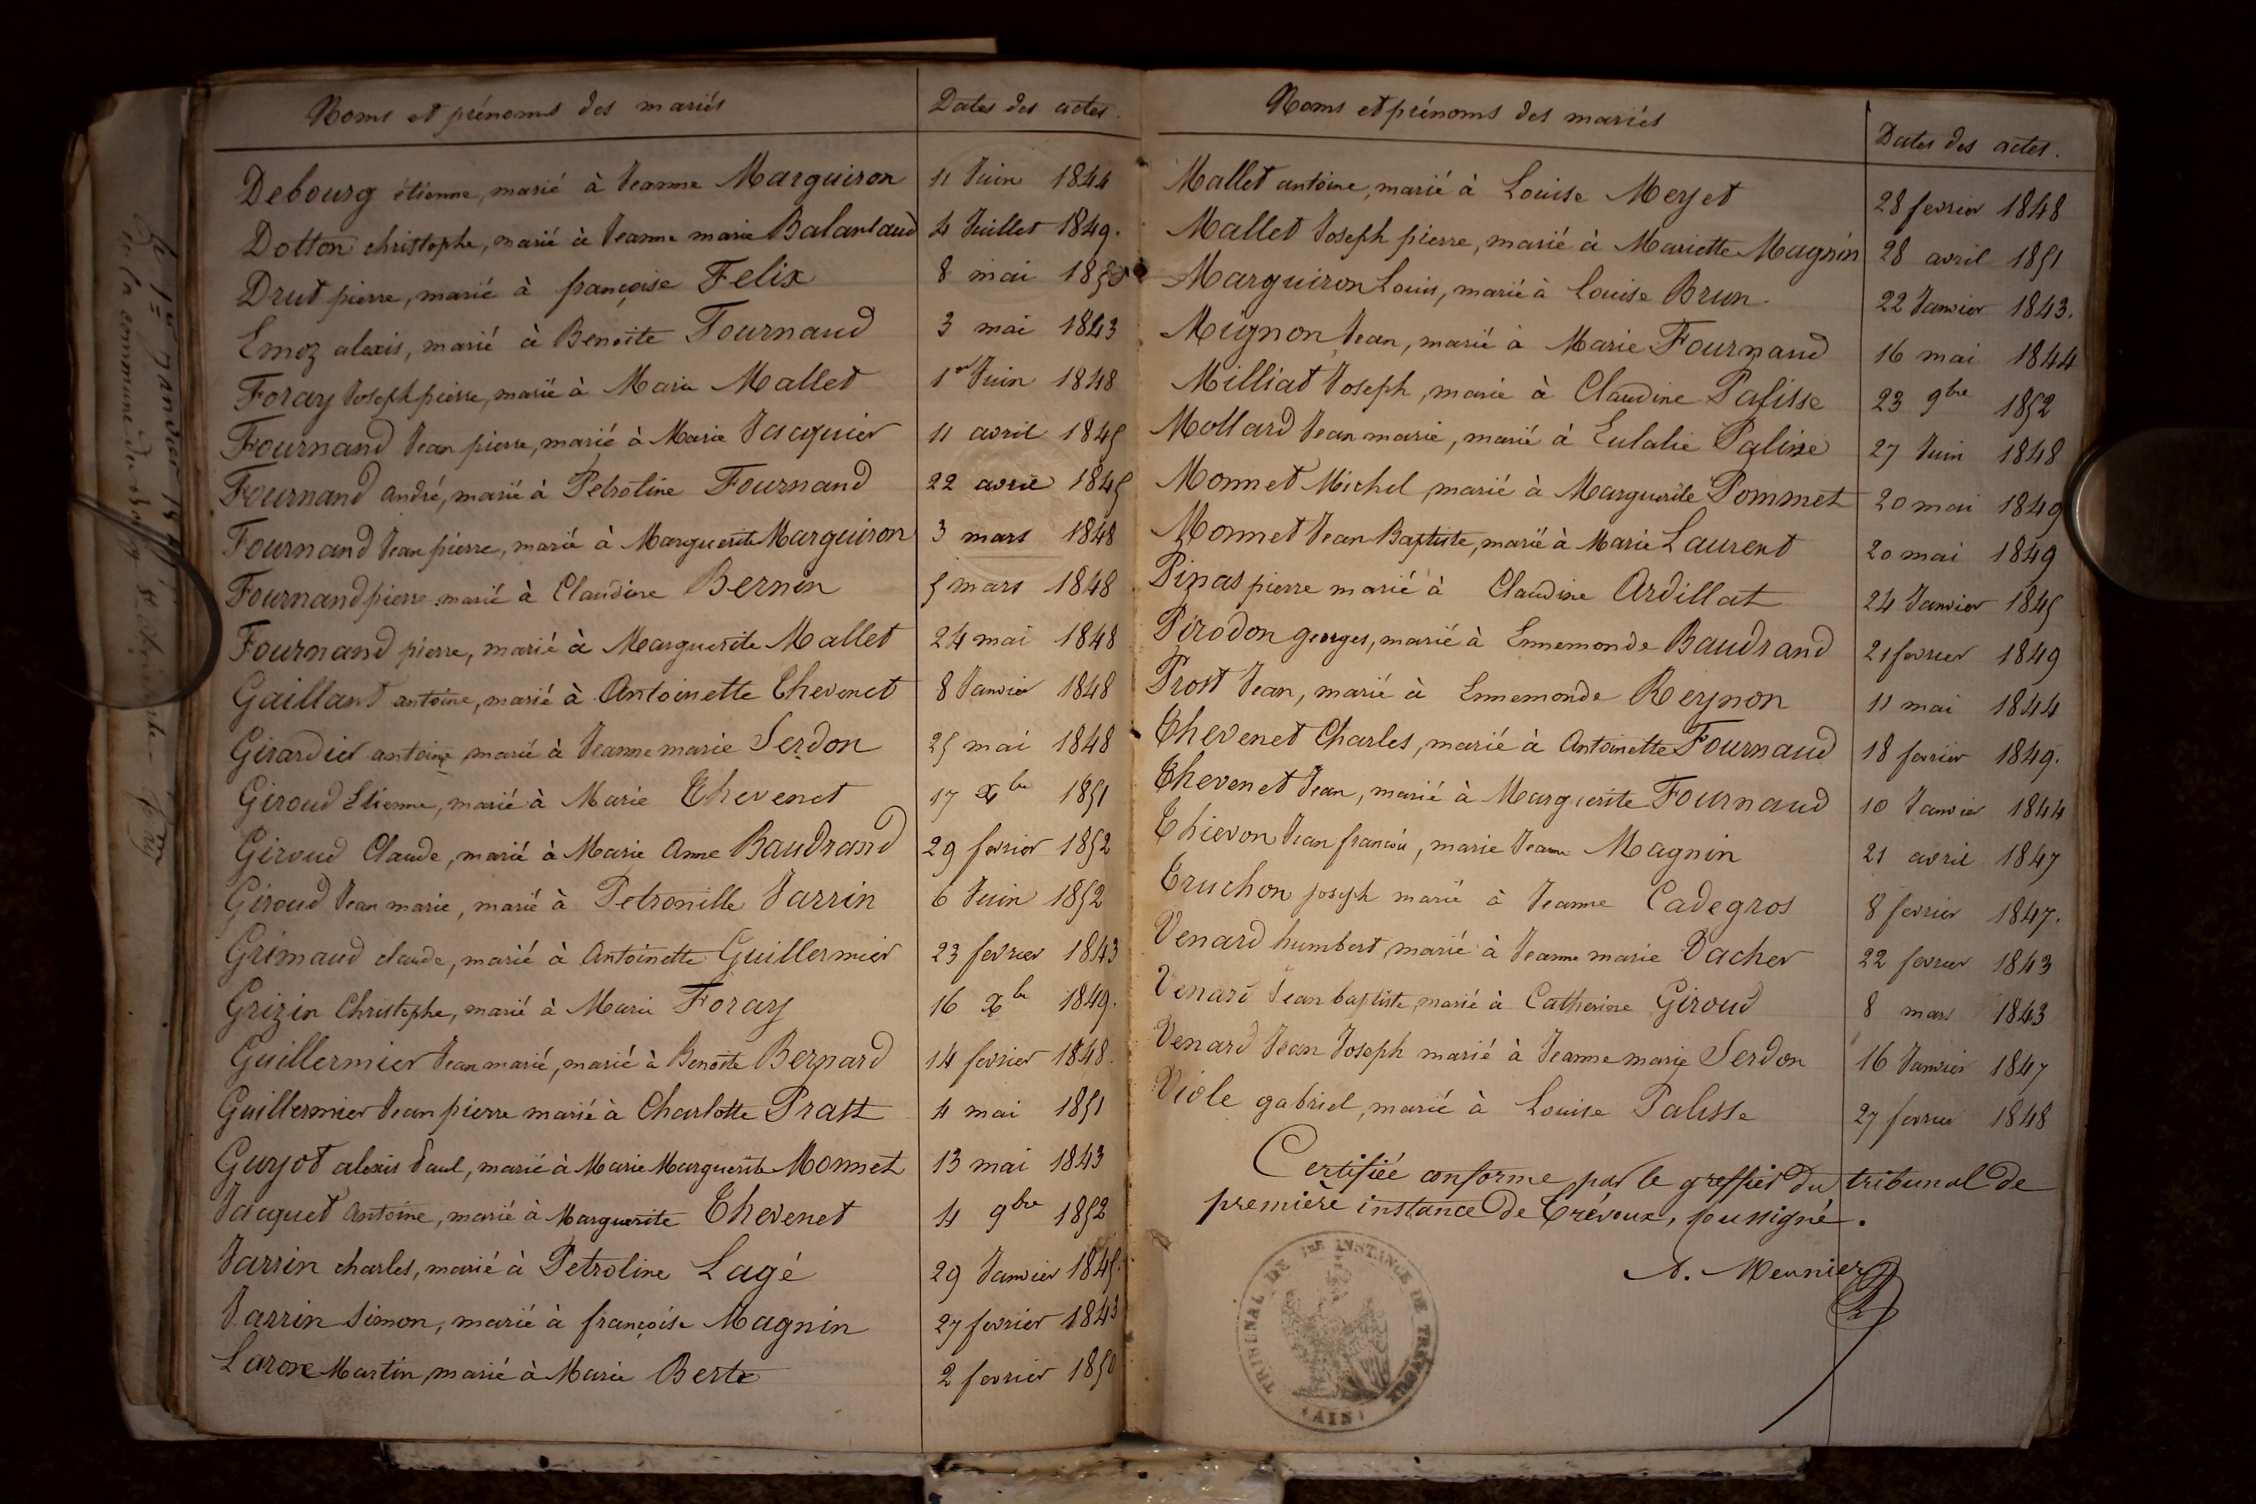 Noms et prénoms des mariés Dates des actes.
Debourg étienne, marié à Jeanne Marguiron 11 Juin 1844
Dotton christophe, marié à Jeanne marie Balanlaud 4 Juillet 1849.
Drut pierre, marié à françoise Felix 8 mai 1850
Emoz alexis, marié à Benoite Fournand 3 mai 1843
Foray Joseph pierre, marié à Marie Mallet 1er Juin 1848
Fournand Jean pierre, marié à Marie Jacquier 11 avril 1845
Fournand andré, marié à Petroline Fournand 22 avril 1845
Fournand Jean pierre, marié à Marguerite Marguiron 3 mars 1848
Fournand pierre marié à Claudine Bernin 5 mars 1848
Fournand pierre, marié à Marguerite Mallet 24 mai 1848
Gaillard antoine, marié à Antoinette Thevenet 8 Janvier 1848
Girardier antoine marié à Jeanne marie Serdon 25 mai 1848
Giroud Etienne, marié à Marie Thevenet 17 Xbre 1851
Giroud Claude, marié à Marie Anne Baudrand 29 fevrier 1852
Giroud Jean marie, marié à Petronille Jarrin 6 Juin 1852
Grimaud claude, marié à Antoinette Guillermier 23 fevrier 1843
Grizin Christophe, marié à Marie Foray 16 Xbre 1849.
Guillermier Jean marié, marié à Benoite Bernard 14 fevrier 1848.
Guillermier Jean pierre marié à Charlotte Pratt 4 mai 1851
Guyot alexis Paul, marié à Marie Marguerite Monnet 13 mai 1843
Jacquet Antoine, marié à Marguerite Thevenet 4 9bre 1852
Jarrin charles, marié à Petroline Lagé 29 Janvier 1845.
Jarrin Simon, marié à françoise Magnin 27 fevrier 1843
Laroxe Martin, marié à Marie Berte 2 fevrier 1850
Noms et prénoms des mariés Dates des actes.
Mallet antoine, marié à Louise Meyet 28 fevrier 1848
Mallet Joseph pierre, marié à Mariette Magnin 28 avril 1851
Marguiron Louis, marié à Louise Brun 22 Janvier 1843.
Mignon Jean, marié à Marie Fournand 16 mai 1844
Milliat Joseph, marié à Claudine Palisse 23 9bre 1852
Mollard Jean marie, marié à Eulalie Palisse 27 Juin 1848
Monnet Michel marié à Marguerite Pommet 20 mai 1849
Monnet Jean Baptiste, marié à Marie Laurent 20 mai 1849
Pinas pierre marié à Claudine Ardillat 24 Janvier 1845
Pirodon georges, marié à Ennemonde Baudrand 21 fevrier 1849
Prost Jean, marié à Ennemonde Reynon 11 mai 1844
Thevenet Charles, marié à Antoinette Fournaud 18 fevrier 1849.
Thevenet Jean, marié à Marguerite Fournaud 10 Janvier 1844
Thievon Jean francois, marié Jeanne Magnin 21 avril 1847
Truchon joseph marié à Jeanne Cadegros 8 fevrier 1847.
Venard humbert marié à Jeanne marie Vacher 22 fevrier 1843
Venard Jean baptiste, marié à Catherine Giroud 8 mars 1843
Venard Jean Joseph marié à Jeanne marie Serdon 16 Janvier 1847
Viole gabriel, marié à Louise Palisse 27 fevrier 1848
Certifiée conforme par le greffier du tribunal de
première instance de Trévoux, soussigné.
A. Meunier
TRIBUNAL DE 1ER INSTANCE DE TREVOUX
(AIN)